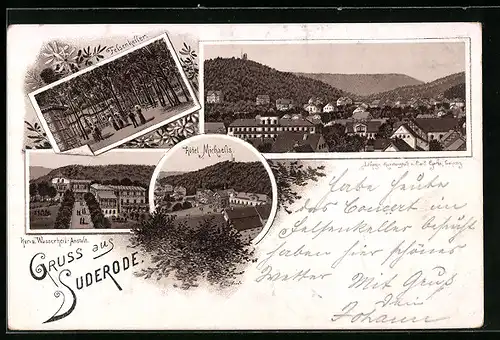 Felsenkeller.
Hôtel Michaelis.
Kur- u. Wasserheil-Anstalt.
GRUSS aus
SUDERODE.
habe heute
das Concert im
Felsenkeller besucht
haben hier schönes
Wetter Mit Gruß
Dein
Johann